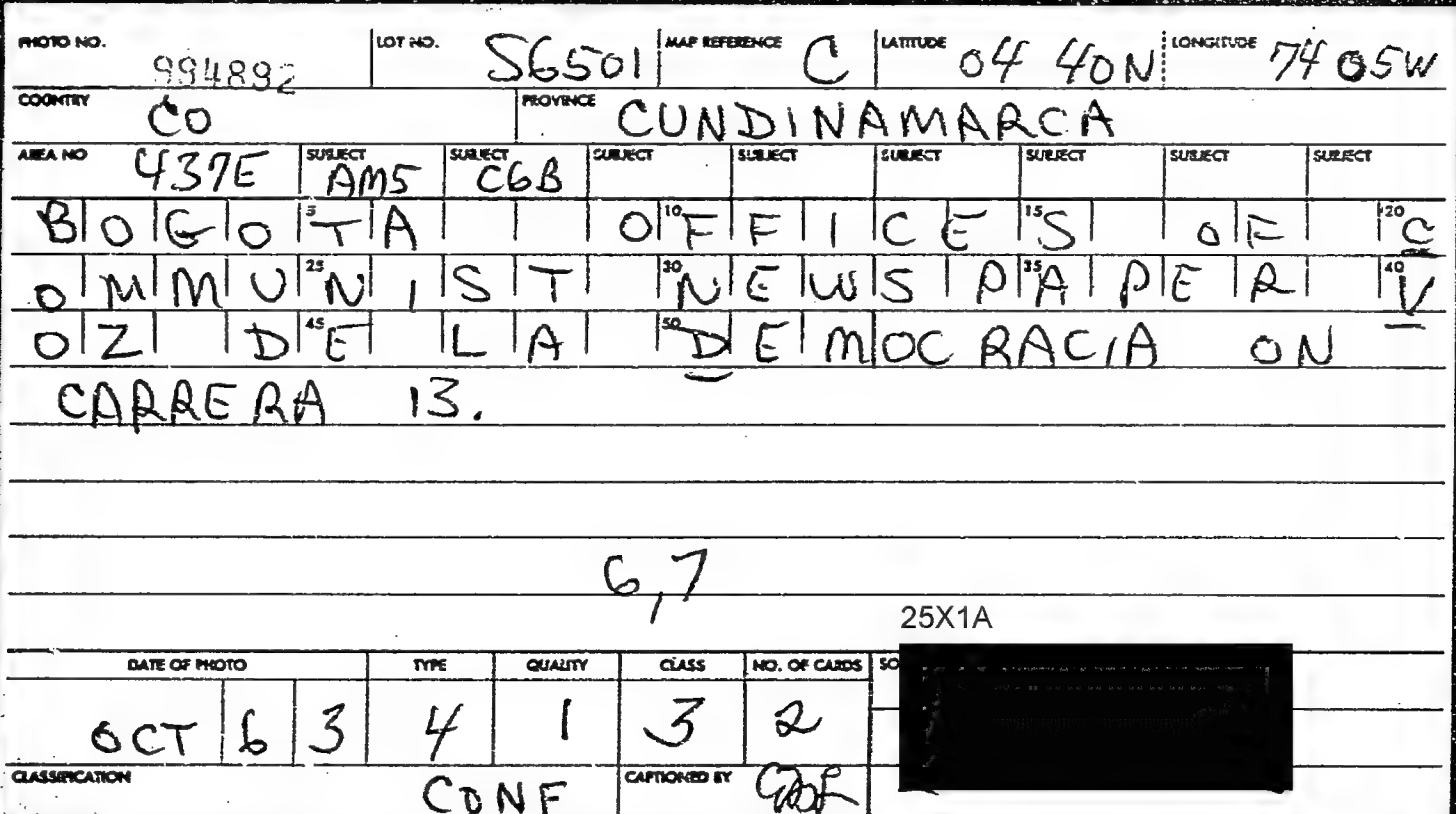 PHOTO NO. 994892 LOT NO. S6501 MAP REFERENCE C LATITUDE 04 40N LONGITUDE 74 05W
COUNTRY CO PROVINCE CUNDINAMARCA
AREA NO 437E SUBJECT AM5 SUBJECT C6B SUBJECT SUBJECT SUBJECT SUBJECT SUBJECT SUBJECT
BOGOTA OFFICES OF C
OMMUNIST NEWSPAPER V
OZ DE LA DEMOCRACIA ON
CARRERA 13.
6,7
25X1A
DATE OF PHOTO TYPE QUALITY CLASS NO. OF CARDS SO
OCT 63 4 1 3 2
CLASSIFICATION CONF CAPTIONED BY